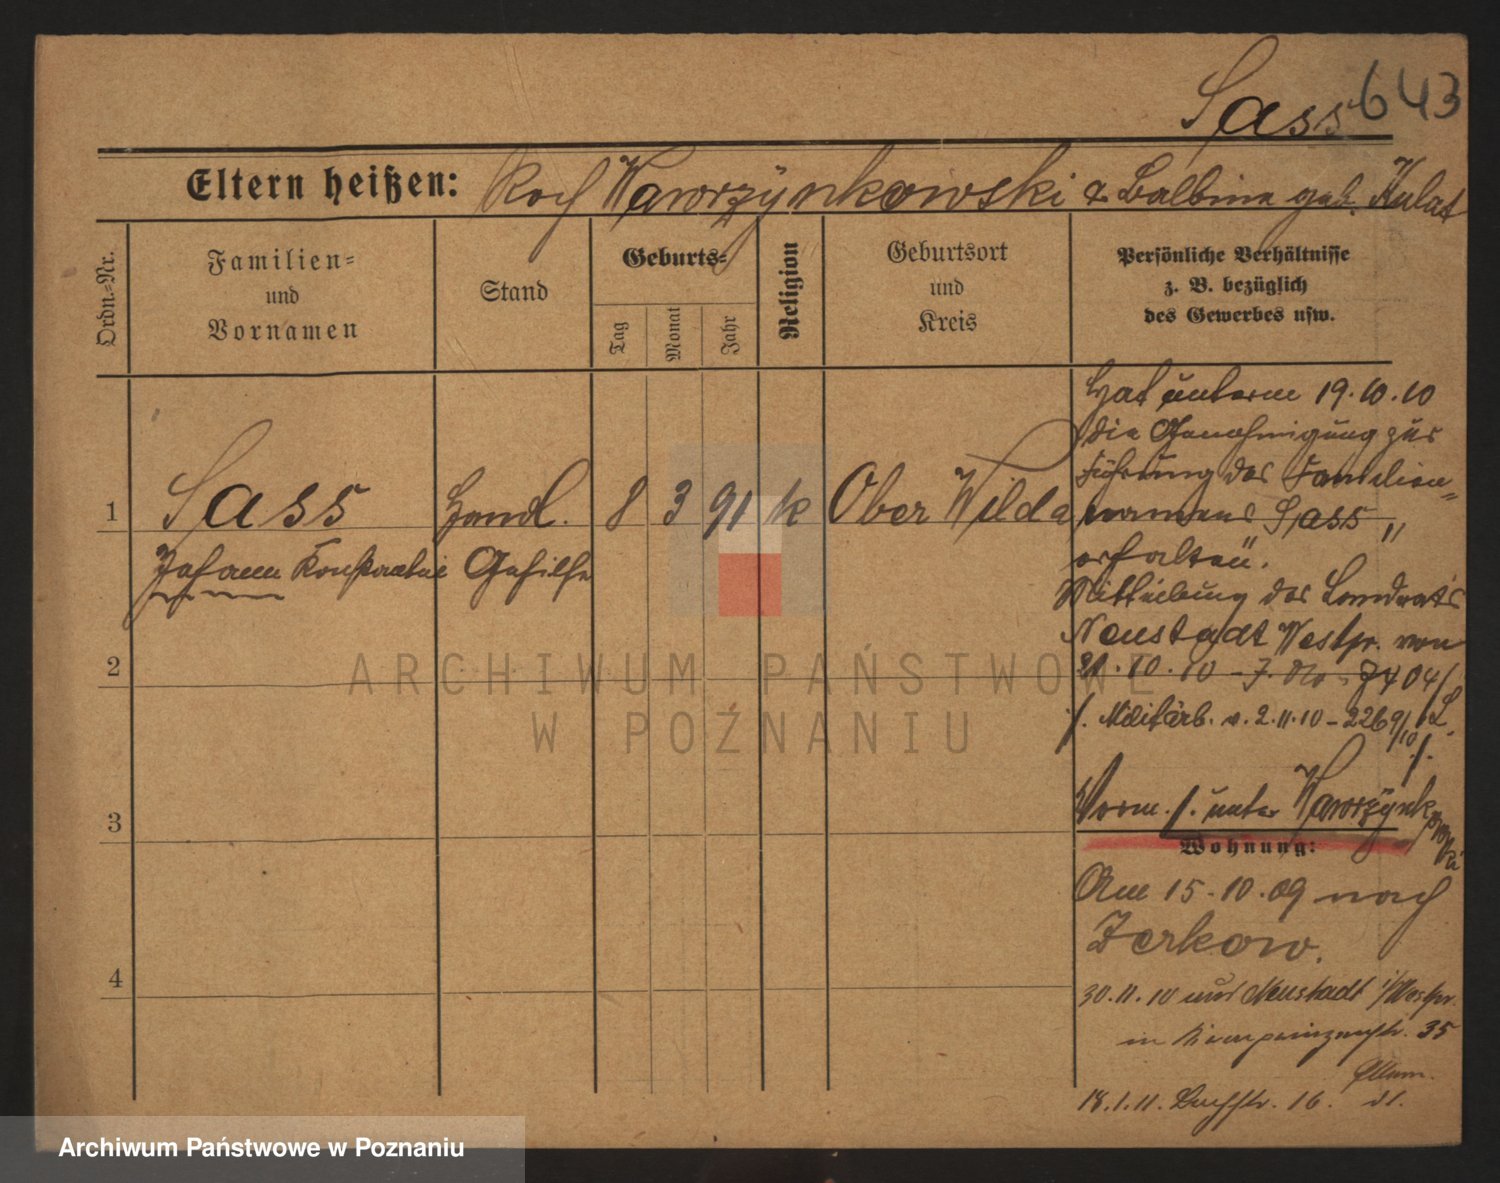 Sass 643
Eltern heißen: Roch Wawrzynkowski & Balbina geb. Kulat
Ordn.-Nr.
Familien-
und
Vornamen
Stand
Geburts-
Tag
Monat
Jahr
Religion
Geburtsort
und
Kreis
Persönliche Verhältnisse
z. B. bezüglich
des Gewerbes usw.
Hat unterm 19.10.10
die Genehmigung zur
Führung des Familien-
namens Sass „
erhalten.
Mitteilung des Landrats
Neustadt Westpr. von
21.10.10 - J. No 7404/L.
/. Militärb. v. 2.11.10 - 2269/10 /.
Vorm. /. unter Wawrzynkowski
1 Sass Handl. 8 3 91 k Ober Wilda
Johann Konstantin Gehilfe
2
3
4
Wohnung:
Am 15.10.09 nach
Zerkow.
30.11.10 aus Neustadt i/Westpr.
in Kronprinzenstr. 35
18.1.11. Buchstr. 16.
ARCHIWUM PAŃSTWOWE
W POZNANIU
Archiwum Państwowe w Poznaniu